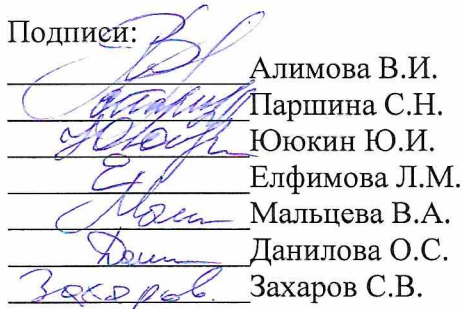 Подписи:
Алимова В.И.
Паршина С.Н.
Ююкин Ю.И.
Елфимова Л.М.
Мальцева В.А.
Данилова О.С.
Захаров. Захаров С.В.